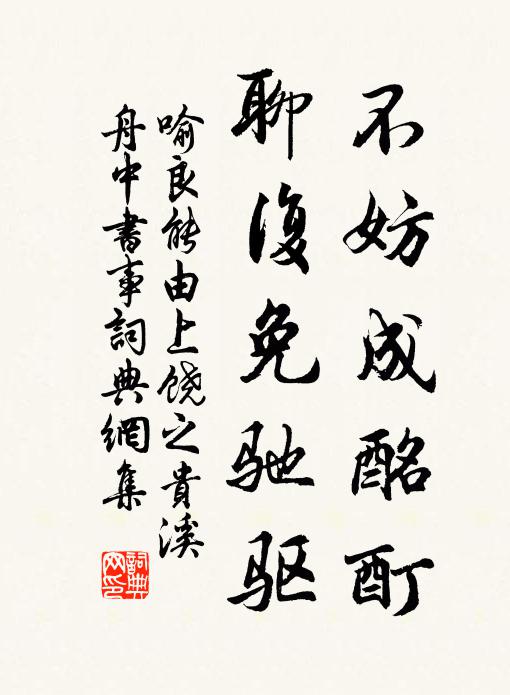 不妨成酩酊
聊復免驰驱
喻良能由上饶之貴溪
舟中書事詞典網集
詞典网印